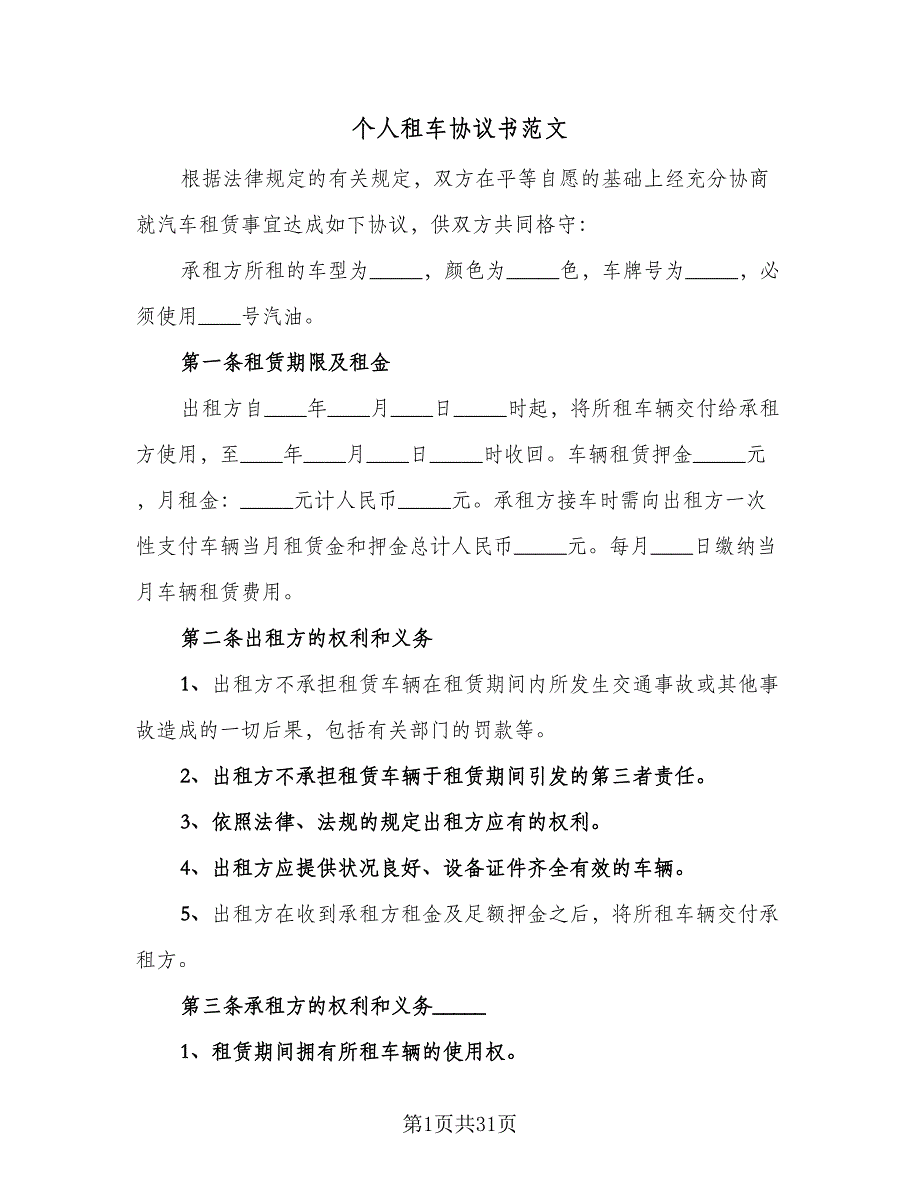 个人租车协议书范文
根据法律规定的有关规定，双方在平等自愿的基础上经充分协商
就汽车租赁事宜达成如下协议，供双方共同格守：
承租方所租的车型为_____，颜色为_____色，车牌号为_____，必
须使用____号汽油。
第一条租赁期限及租金
出租方自____年____月____日_____时起，将所租车辆交付给承租
方使用，至____年____月____日_____时收回。车辆租赁押金_____元
，月租金：_____元计人民币_____元。承租方接车时需向出租方一次
性支付车辆当月租赁金和押金总计人民币_____元。每月____日缴纳当
月车辆租赁费用。
第二条出租方的权利和义务
1、出租方不承担租赁车辆在租赁期间内所发生交通事故或其他事
故造成的一切后果，包括有关部门的罚款等。
2、出租方不承担租赁车辆于租赁期间引发的第三者责任。
3、依照法律、法规的规定出租方应有的权利。
4、出租方应提供状况良好、设备证件齐全有效的车辆。
5、出租方在收到承租方租金及足额押金之后，将所租车辆交付承
租方。
第三条承租方的权利和义务_____
1、租赁期间拥有所租车辆的使用权。
第1页共31页